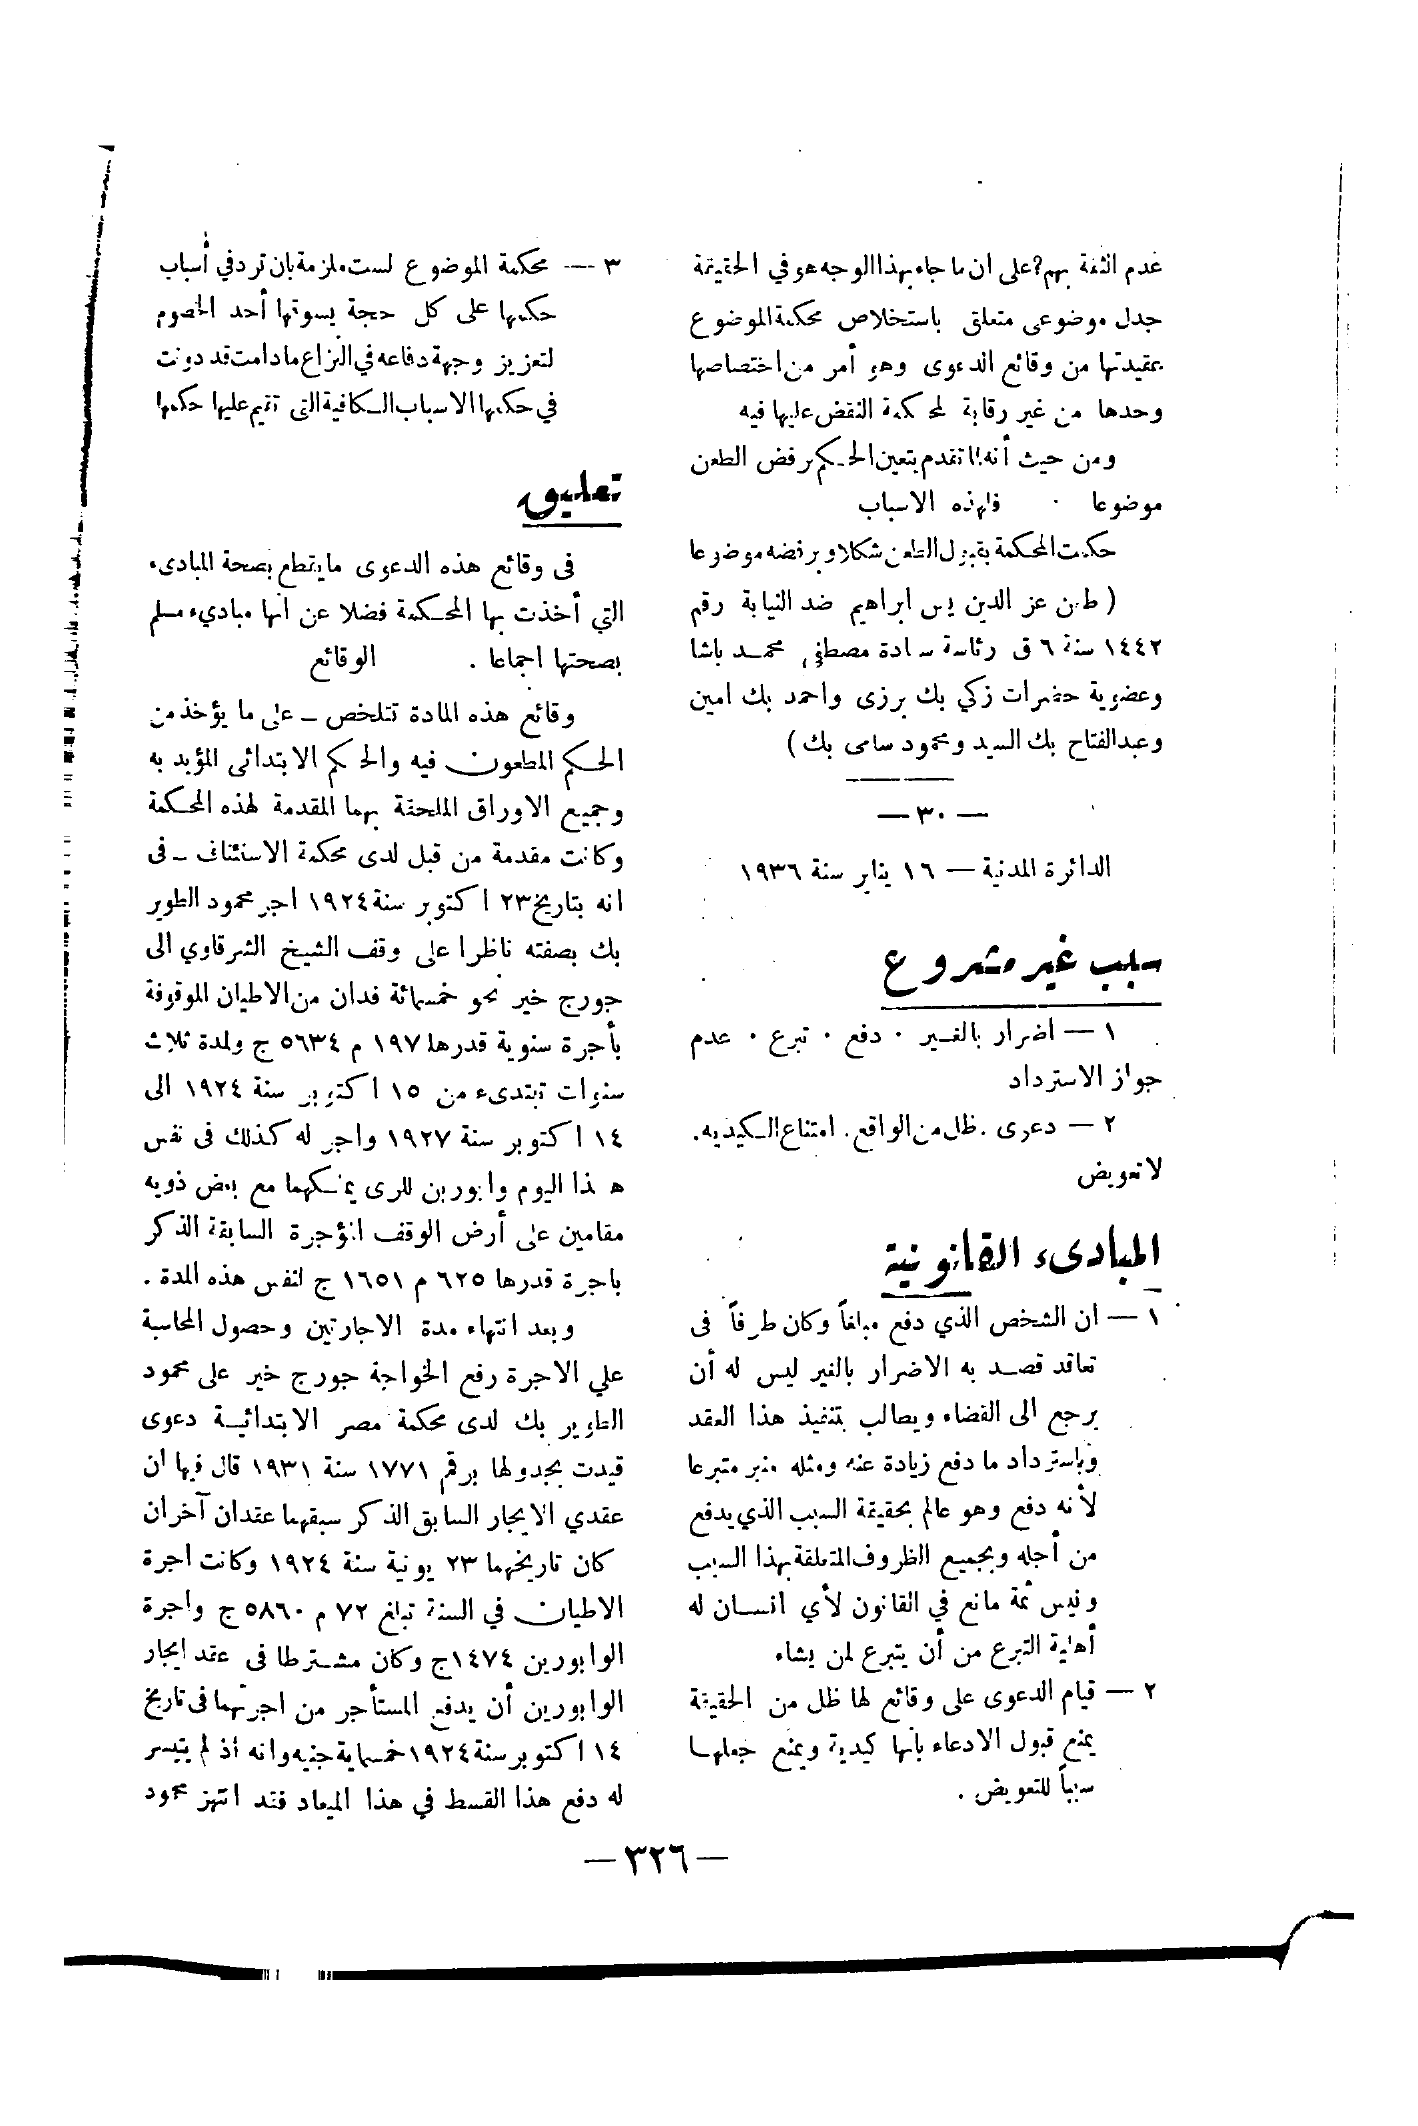 عدم الثقة بهم؟ على ان ما جاء بهذا الوجه هو في الحقيقة
جدل موضوعى متعلق باستخلاص محكمة الموضوع
عقيدتها من وقائع الدعوى وهو أمر من اختصاصها
وحدها من غير رقابة لمحكمة النقض عليها فيه
ومن حيث أنه لما تقدم يتعين الحكم برفض الطعن
موضوعا . فلهذه الاسباب
حكمت المحكمة بقبول الطعن شكلا وبرفضه موضوعا
( طعن عز الدين يس ابراهيم ضد النيابة رقم
١٤٤٢ سنة ٦ ق رئاسة سعادة مصطفى محمد باشا
وعضوية حضرات زكي بك برزى واحمد بك امين
وعبدالفتاح بك السيد ومحمود سامى بك )
— ٣٠ —
الدائرة المدنية — ١٦ يناير سنة ١٩٣٦
سبب غير مشروع
١ — اضرار بالغير . دفع . تبرع . عدم
جواز الاسترداد
٢ — دعوى . ظل من الواقع . امتناع الكيدية .
لا تعويض
المبادىء القانونية
١ — ان الشخص الذي دفع مبلغاً وكان طرفاً فى
تعاقد قصد به الاضرار بالغير ليس له أن
يرجع الى القضاء ويطالب بتنفيذ هذا العقد
وباسترداد ما دفع زيادة عنه ومثله يعتبر متبرعا
لأنه دفع وهو عالم بحقيقة السبب الذي يدفع
من أجله وبجميع الظروف المتعلقة بهذا السبب
وليس ثمة مانع في القانون لأي انسان له
أهلية التبرع من أن يتبرع لمن يشاء
٢ — قيام الدعوى على وقائع لها ظل من الحقيقة
يمنع قبول الادعاء بأنها كيدية ويمنع جعلها
سبباً للتعويض .
٣ — محكمة الموضوع ليست ملزمة بان ترد في أسباب
حكمها على كل حجة يسوقها أحد الخصوم
لتعزيز وجهة دفاعه في النزاع ما دامت قد دونت
في حكمها الاسباب الكافية التى تقيم عليها حكمها
تعليق
فى وقائع هذه الدعوى ما يقطع بصحة المبادىء
التي أخذت بها المحكمة فضلا عن انها مبادىء مسلم
بصحتها اجماعا . الوقائع
وقائع هذه المادة تتلخص – على ما يؤخذ من
الحكم المطعون فيه والحكم الابتدائى المؤيد به
وجميع الاوراق الملحقة بهما المقدمة لهذه المحكمة
وكانت مقدمة من قبل لدى محكمة الاستئناف – فى
انه بتاريخ ٢٣ اكتوبر سنة ١٩٢٤ اجر محمود الطوير
بك بصفته ناظرا على وقف الشيخ الشرقاوي الى
جورج خير نحو خمسمائة فدان من الاطيان الموقوفة
بأجرة سنوية قدرها ١٩٧ م ٥٦٣٤ ج ولمدة ثلاث
سنوات تبتدىء من ١٥ اكتوبر سنة ١٩٢٤ الى
١٤ اكتوبر سنة ١٩٢٧ واجر له كذلك فى نفس
هذا اليوم وابورين للرى يملكهما مع بعض ذويه
مقامين على أرض الوقف المؤجرة السابقة الذكر
باجرة قدرها ٦٢٥ م ١٦٥١ ج لنفس هذه المدة .
وبعد انتهاء مدة الاجارتين وحصول المحاسبة
علي الاجرة رفع الخواجة جورج خير على محمود
الطوير بك لدى محكمة مصر الابتدائية دعوى
قيدت بجدولها برقم ١٧٧١ سنة ١٩٣١ قال فيها ان
عقدي الايجار السابق الذكر سبقهما عقدان آخران
كان تاريخهما ٢٣ يونية سنة ١٩٢٤ وكانت اجرة
الاطيان في السنة تبلغ ٧٢ م ٥٨٦٠ ج واجرة
الوابورين ١٤٧٤ ج وكان مشترطا فى عقد ايجار
الوابورين أن يدفع المستأجر من اجرتهما فى تاريخ
١٤ اكتوبر سنة ١٩٢٤ خمسماية جنيه وانه اذ لم يتيسر
له دفع هذا القسط في هذا الميعاد فقد انتهز محمود
— ٣٢٦ —